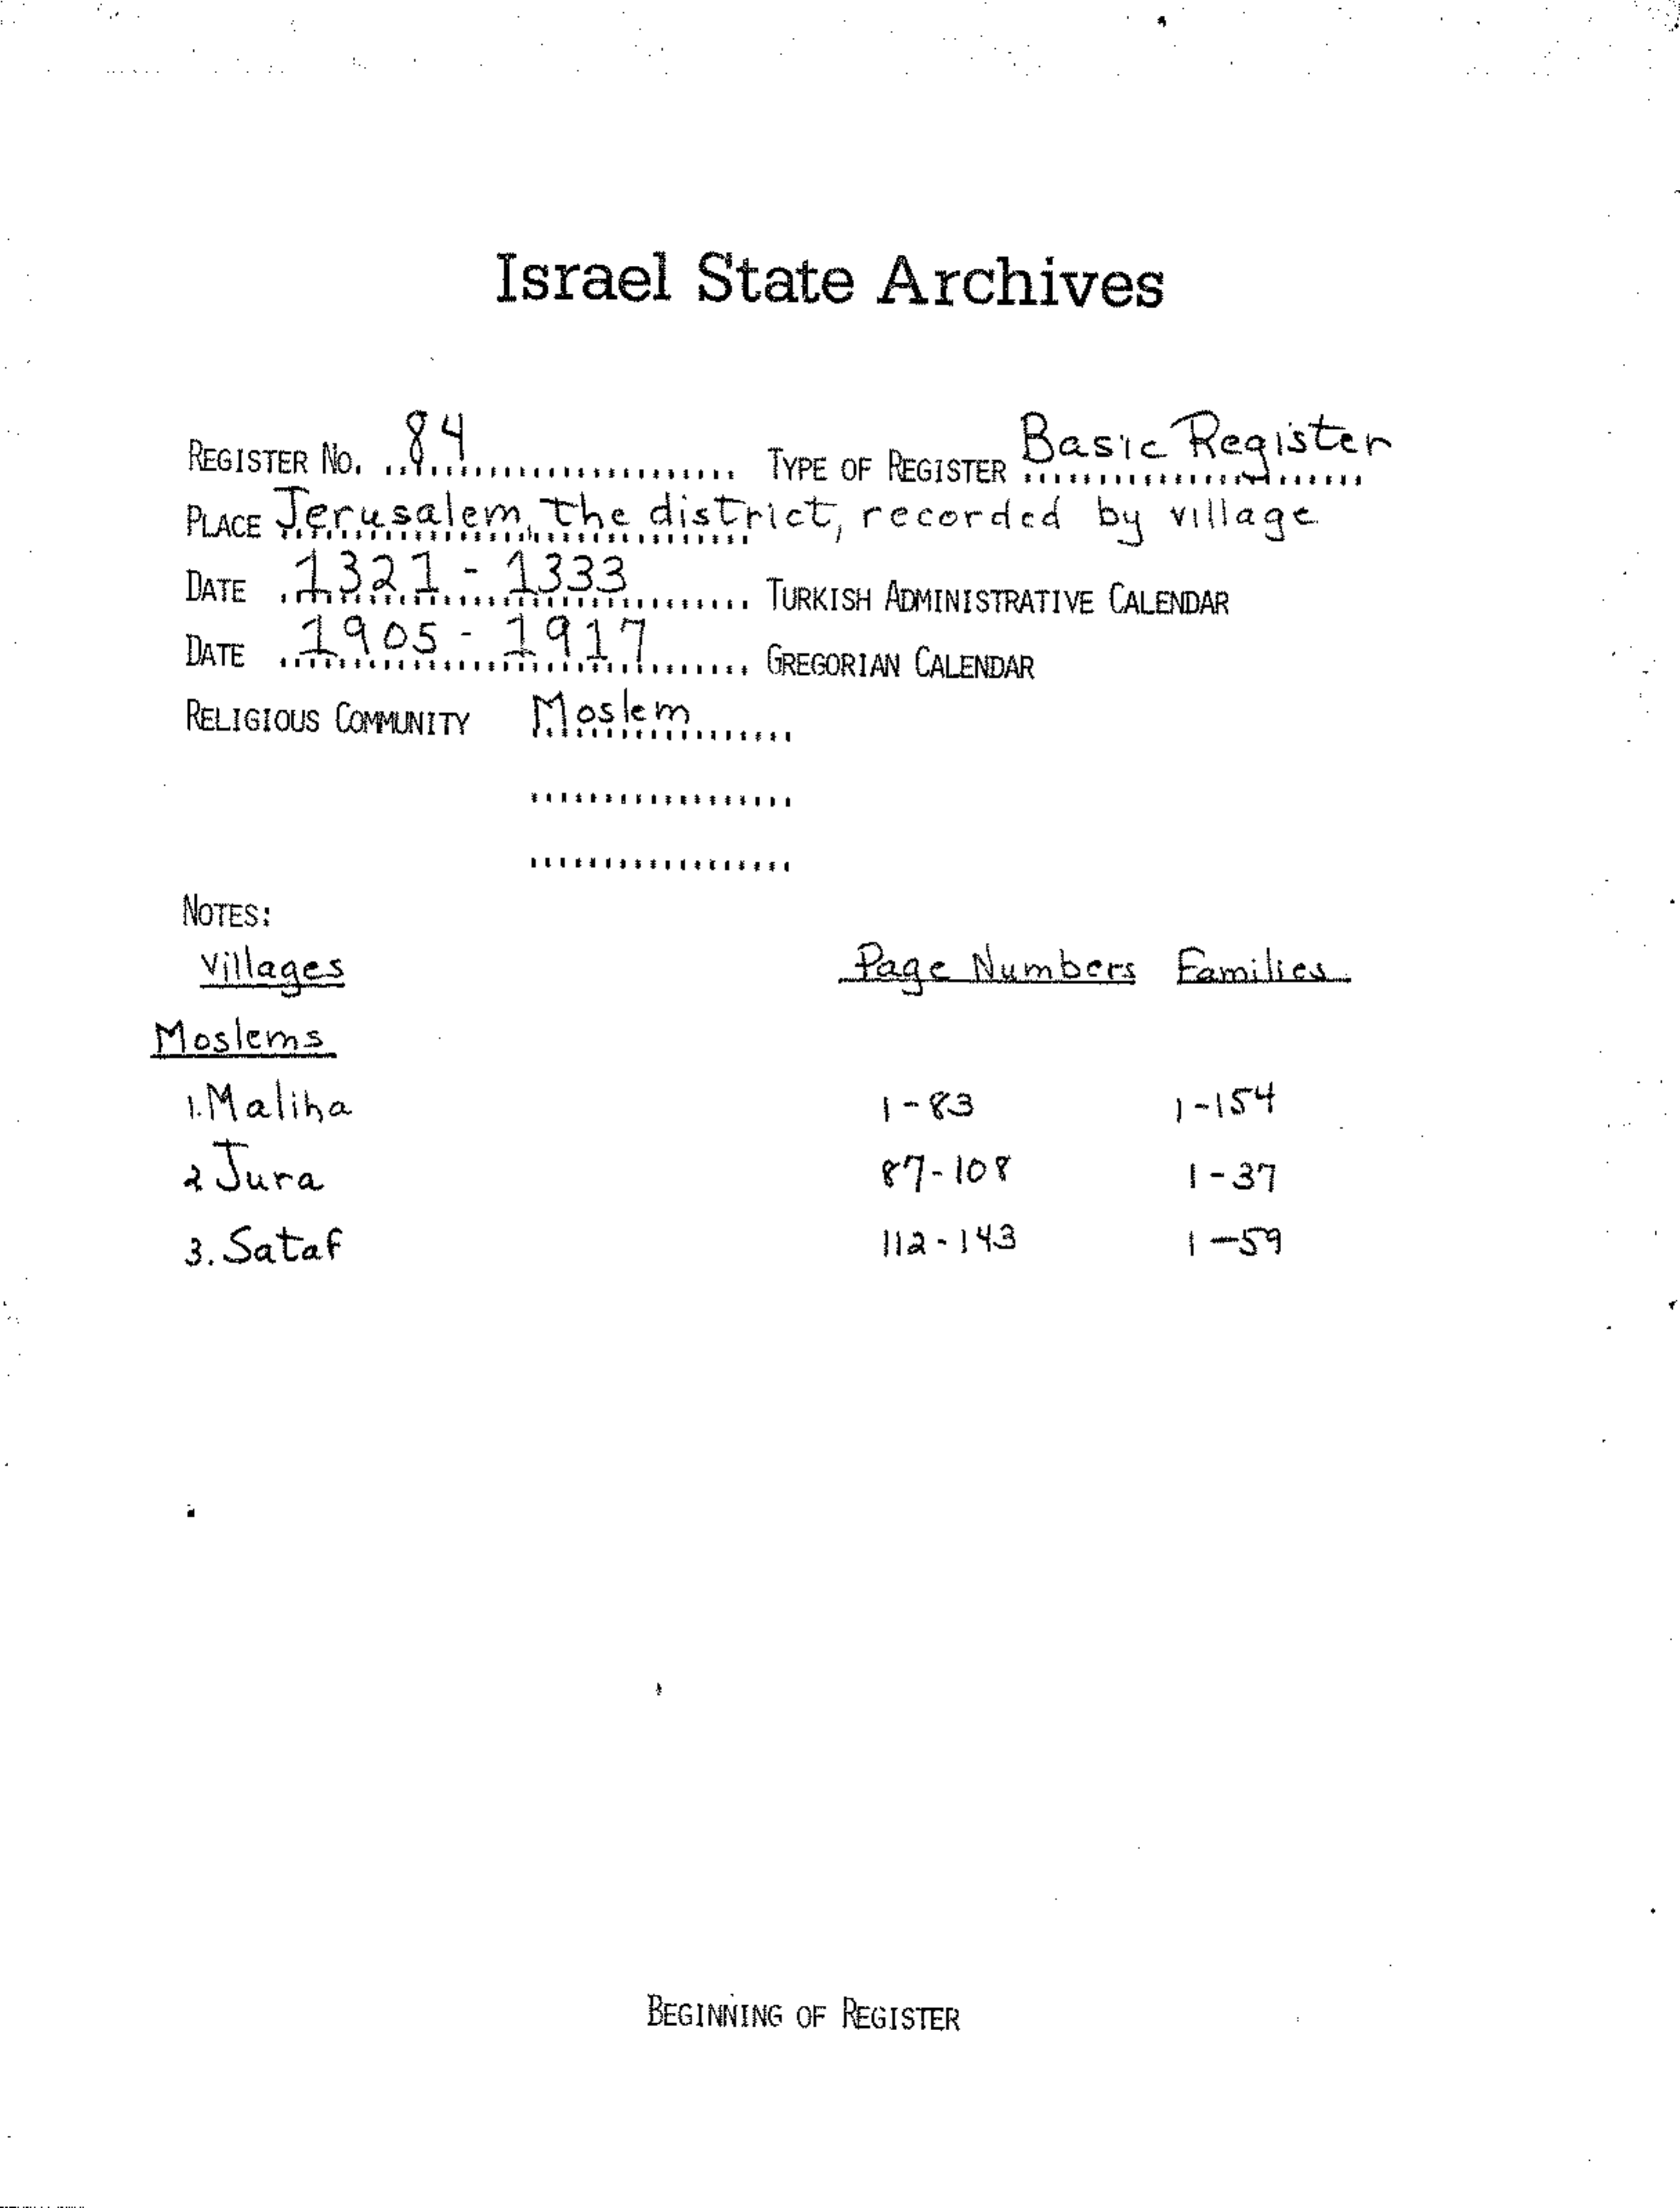 Israel State Archives
REGISTER NO. 84 TYPE OF REGISTER Basic Register
PLACE Jerusalem, the district, recorded by village
DATE 1321 - 1333 TURKISH ADMINISTRATIVE CALENDAR
DATE 1905 - 1917 GREGORIAN CALENDAR
RELIGIOUS COMMUNITY Moslem
NOTES:
Villages Page Numbers Families
Moslems
1. Maliha 1-83 1-154
2 Jura 87-108 1-37
3. Sataf 112-143 1-59
BEGINNING OF REGISTER